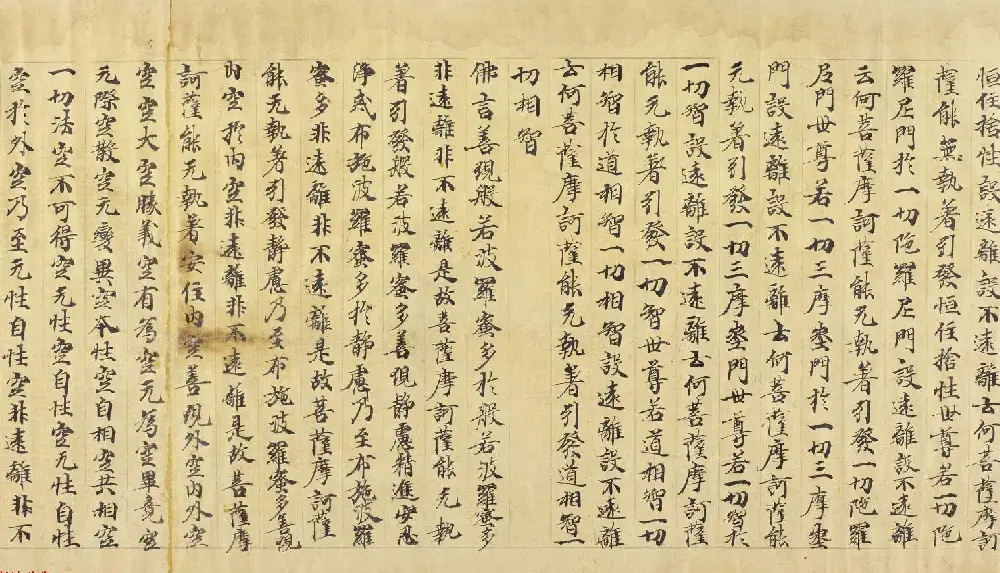 恒住捨性設遠離設不遠離云何菩薩摩訶
薩能無執著引發恒住捨性世尊若一切陀
羅尼門於一切陀羅尼門設遠離設不遠離
云何菩薩摩訶薩能无執著引發一切陀羅
尼門世尊若一切三摩埊門於一切三摩埊
門設遠離設不遠離云何菩薩摩訶薩能
元執著引發一切三摩埊門世尊若一切智於
一切智設遠離設不遠離云何菩薩摩訶薩
能无執著引發一切智世尊若道相智一切
相智於道相智一切相智設遠離設不遠離
云何菩薩摩訶薩能无執著引發道相智一
切相智
佛言善現般若波羅蜜多於般若波羅蜜多
非遠離非不遠離是故菩薩摩訶薩能无執
著引發般若波羅蜜多善現静慮精進安忍
淨戒布施波羅蜜多於静慮乃至布施波羅
蜜多非遠離非不遠離是故菩薩摩訶薩
能无執著引發静慮乃至布施波羅蜜多善現
內空於內空非遠離非不遠離是故菩薩摩
訶薩能无執著安住內空善現外空內外空
空空大空勝義空有為空无為空畢竟空
无際空散空无變異空本性空自相空共相空
一切法空不可得空无性空自性空无性自性
空於外空乃至无性自性空非遠離非不